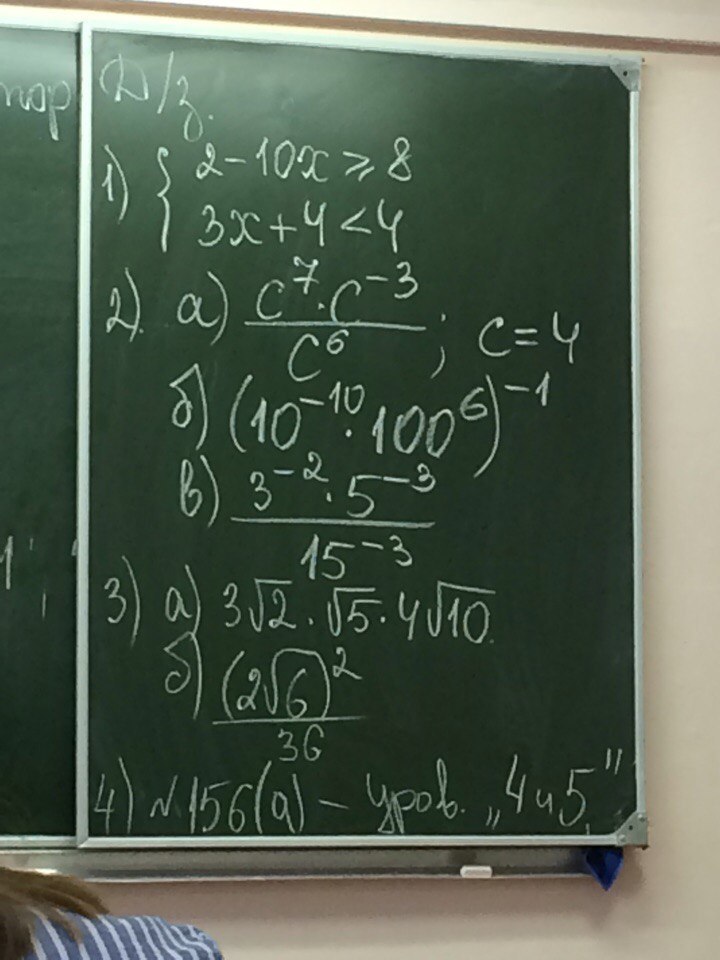 Д/з.
1) { 2-10x ⩾ 8
3x+4<4
2). а) c⁷·c⁻³ / c⁶ ; c=4
б) (10⁻¹⁰·100⁶)⁻¹
в) 3⁻²·5⁻³ / 15⁻³
3) а) 3√2·√5·4√10.
б) (2√6)² / 36
4) №156(а) – уров. „4 и 5"